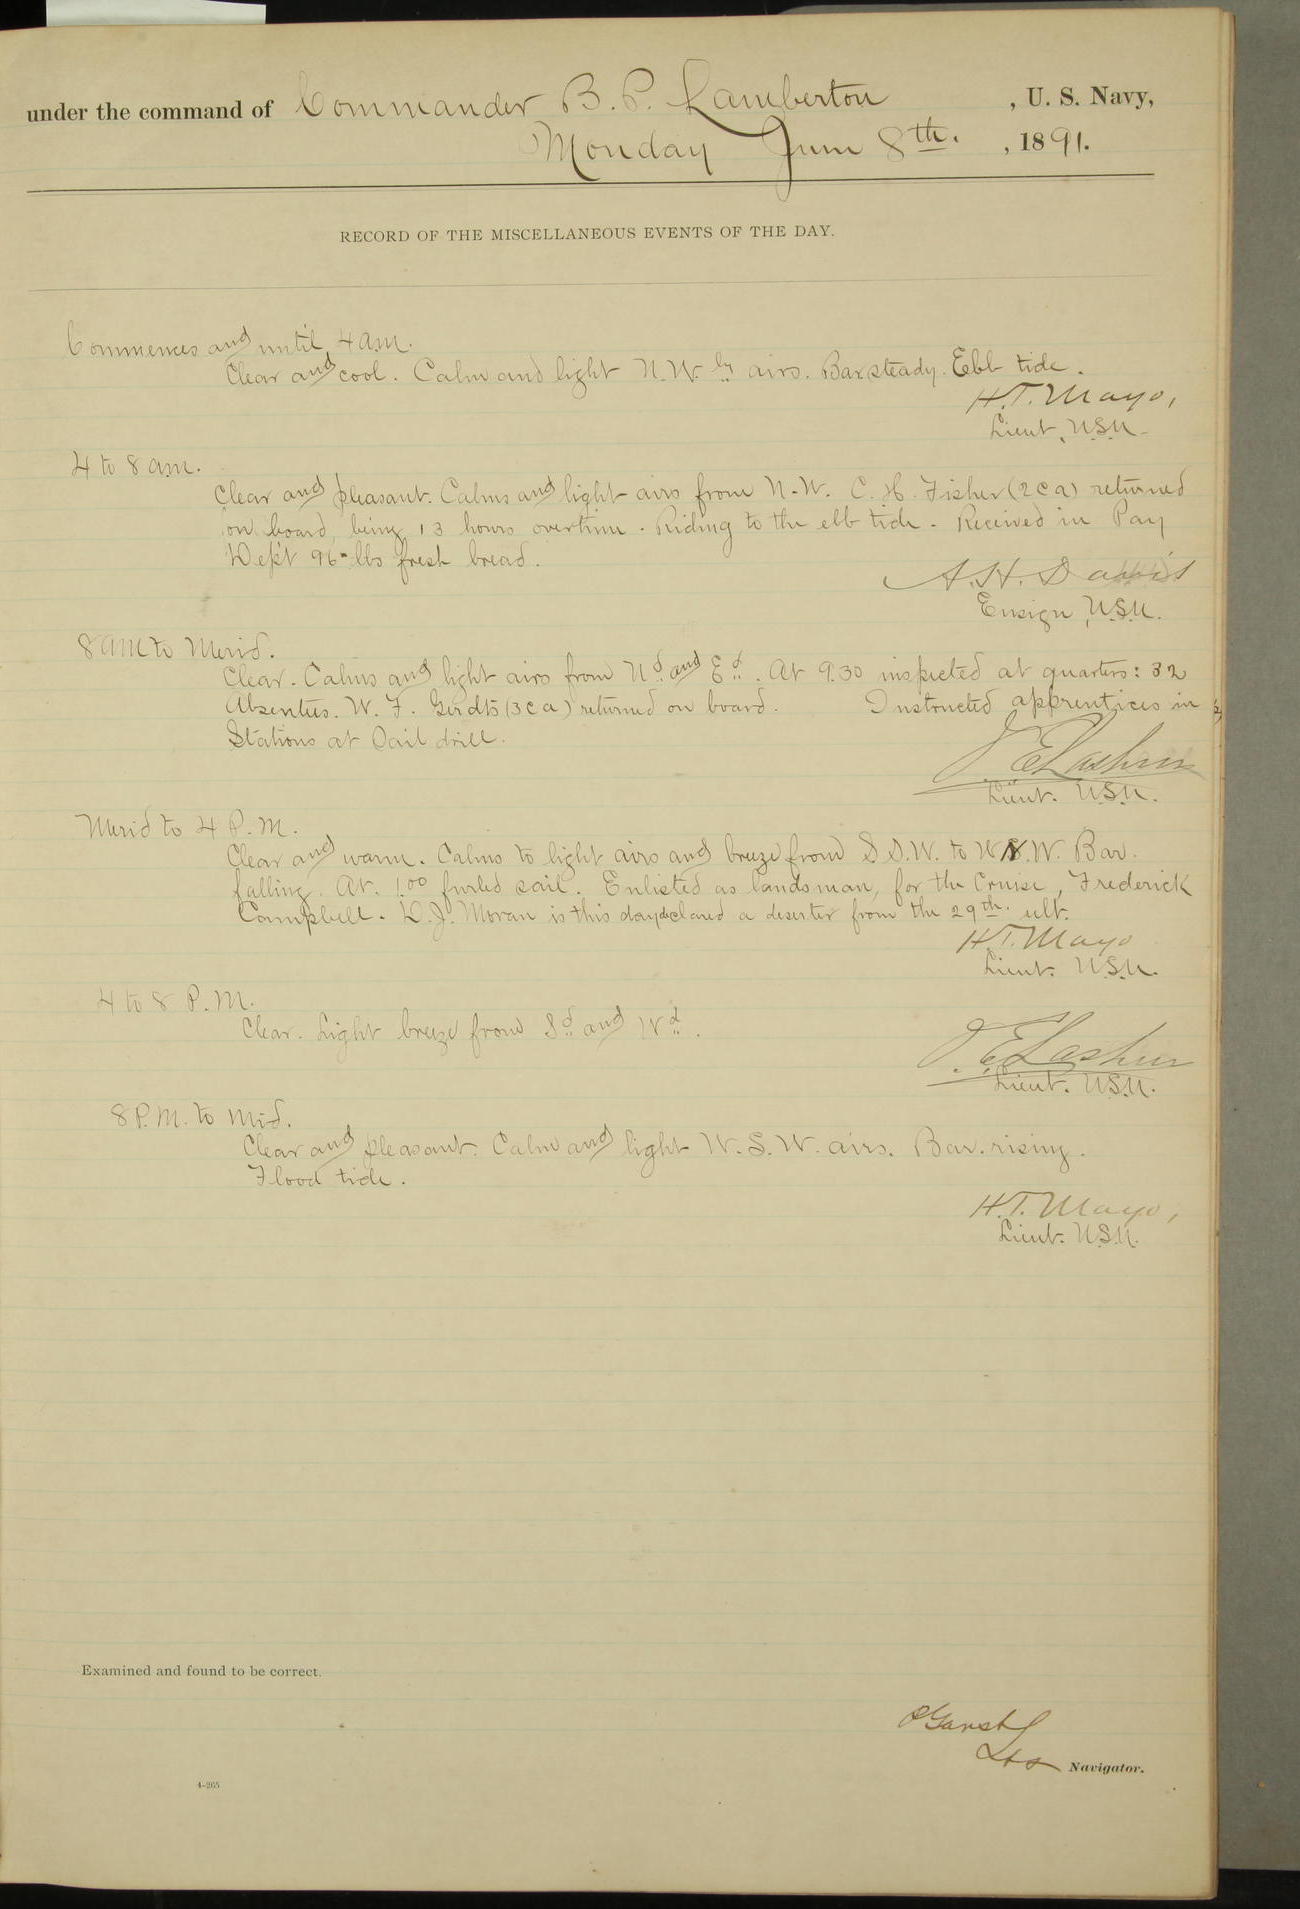 under the command of Commander B. P. Lamberton , U. S. Navy,
Monday June 8th. , 1891.
RECORD OF THE MISCELLANEOUS EVENTS OF THE DAY.
Commences and until 4 a.m.
Clear and cool. Calm and light N.W.ly airs. Bar steady. Ebb tide.
H.T. Mayo,
Lieut, U.S.N.
4 to 8 a.m.
Clear and pleasant. Calms and light airs from N.W. C. H. Fisher (2 c a) returned
on board, being 13 hours overtime. Riding to the ebb tide. Received in Pay
Dept 96-lbs fresh bread.
A. H. Davis
Ensign, U.S.N.
8 am to Merid.
Clear. Calms and light airs from Nd and Ed. At 9.30 inspected at quarters: 32
Absentees. W. F. Gerdts (3 c a) returned on board. Instructed apprentices in
Stations at Sail drill.
Lieut. U.S.N.
Merid to 4 P.M.
Clear and warm. Calms to light airs and breeze from S S.W. to W N.W. Bar.
falling. At 1.00 furled sail. Enlisted as landsman, for the Cruise, Frederick
Campbell. D. J. Moran is this day declared a deserter from the 29th. ult.
H.T. Mayo
Lieut. U.S.N.
4 to 8 P.M.
Clear. Light breeze from Sd and Wd.
Lieut. U.S.N.
8 P.M. to Mid.
Clear and pleasant. Calm and light W.S.W. airs. Bar. rising.
Flood tide.
H.T. Mayo,
Lieut. U.S.N.
Examined and found to be correct.
Navigator.
4-265